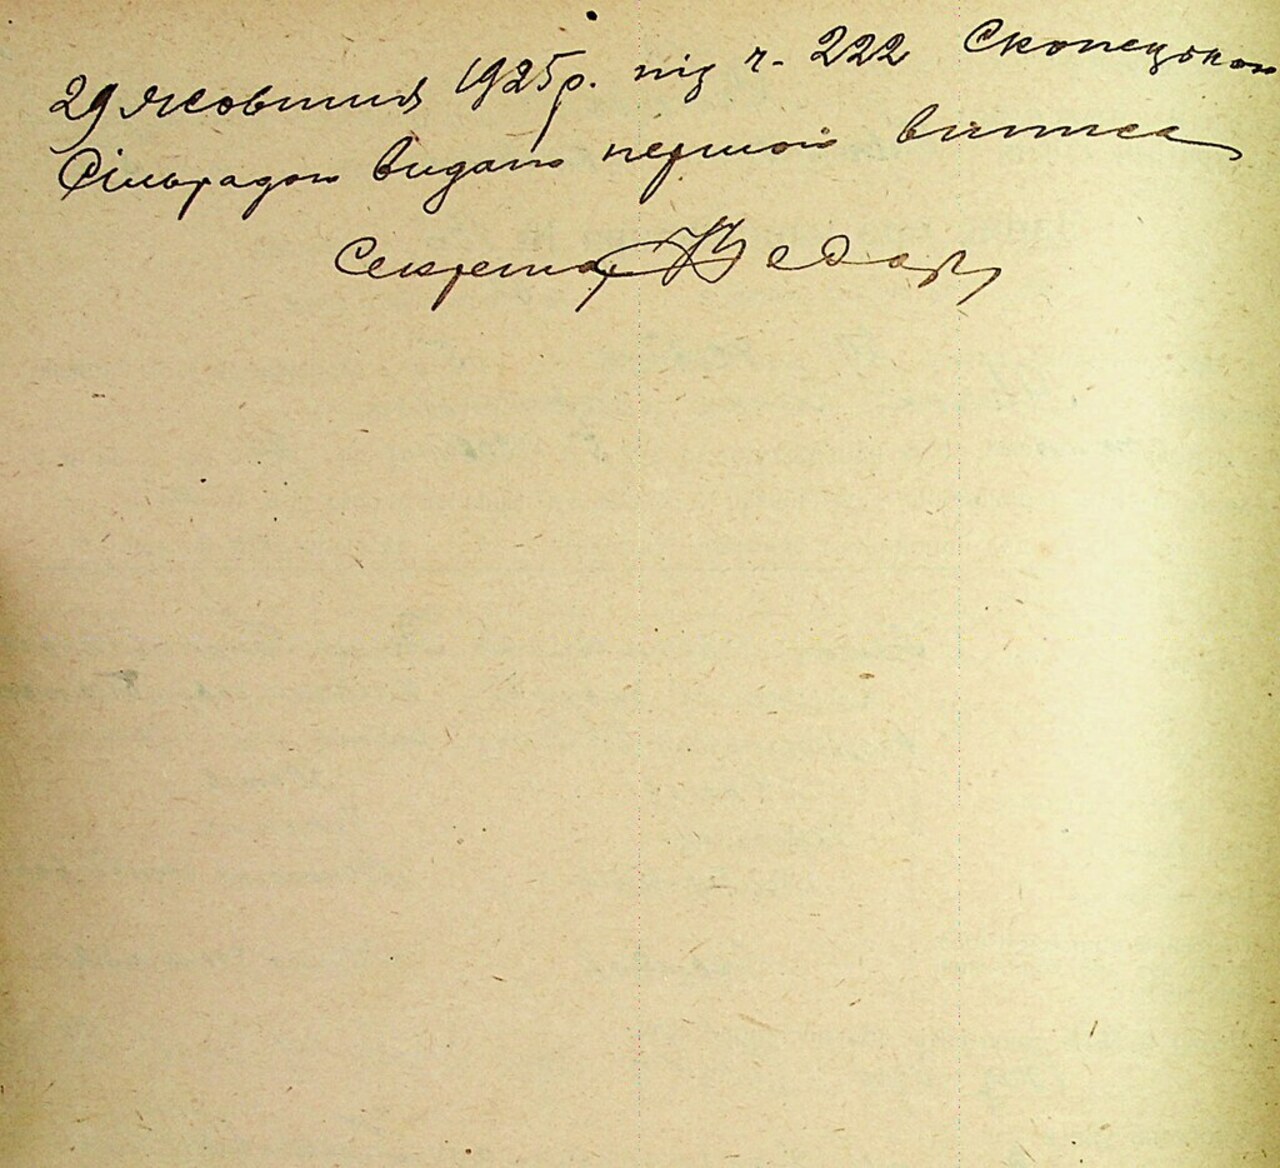 29 жовтня 1925р. під ч. 222 Скопецькою
Сільрадою видано першої випис
Секретар